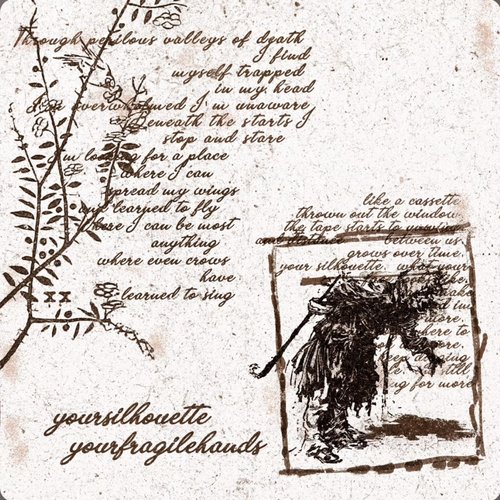 Through perilous valleys of death
I find
myself trapped
in my head
I'm overwhelmed I'm unaware
Beneath the starts I
stop and stare
I'm looking for a place
where I can
spread my wings
and learned to fly
where I can be most
anything
where even crows
have
learned to sing
xx
like a cassette
thrown out the window
the tape starts to
and distance between us
grows over time.
your silhouette. what your
more.
where to
keep
still
for more
yoursilhouette
yourfragilehands